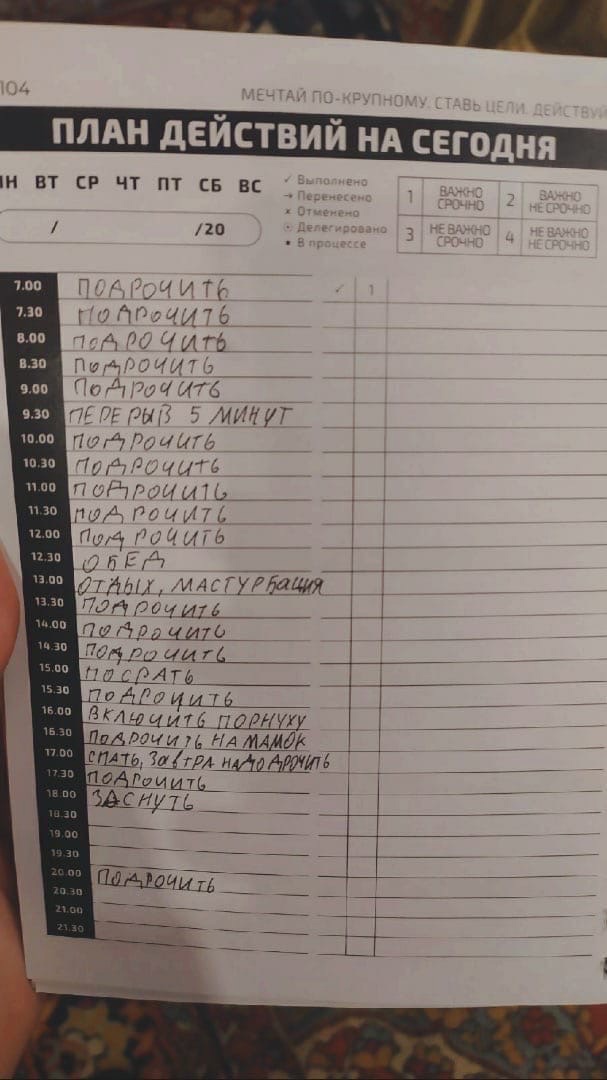 104
МЕЧТАЙ ПО-КРУПНОМУ. СТАВЬ ЦЕЛИ. ДЕЙСТВУЙ
ПЛАН ДЕЙСТВИЙ НА СЕГОДНЯ
ПН ВТ СР ЧТ ПТ СБ ВС
/ /20
✓ Выполнено
→ Перенесено
× Отменено
⊙ Делегировано
• В процессе
1 ВАЖНО СРОЧНО 2 ВАЖНО НЕ СРОЧНО
3 НЕ ВАЖНО СРОЧНО 4 НЕ ВАЖНО НЕ СРОЧНО
7.00 ПОДРОЧИТЬ ✓ 1
7.30 ПОДРОЧИТЬ
8.00 ПОДРОЧИТЬ
8.30 ПОДРОЧИТЬ
9.00 ПОДРОЧИТЬ
9.30 ПЕРЕРЫВ 5 МИНУТ
10.00 ПОДРОЧИТЬ
10.30 ПОДРОЧИТЬ
11.00 ПОДРОЧИТЬ
11.30 ПОДРОЧИТЬ
12.00 ПОДРОЧИТЬ
12.30 ОБЕД
13.00 ОТДЫХ, МАСТУРБАЦИЯ
13.30 ПОДРОЧИТЬ
14.00 ПОДРОЧИТЬ
14.30 ПОДРОЧИТЬ
15.00 ПОСРАТЬ
15.30 ПОДРОЧИТЬ
16.00 ВКЛЮЧИТЬ ПОРНУХУ
16.30 ПОДРОЧИТЬ НА МАМОК
17.00 СПАТЬ, ЗАВТРА НАДО ДРОЧИТЬ
17.30 ПОДРОЧИТЬ
18.00 ЗАСНУТЬ
18.30
19.00
19.30
20.00 ПОДРОЧИТЬ
20.30
21.00
21.30